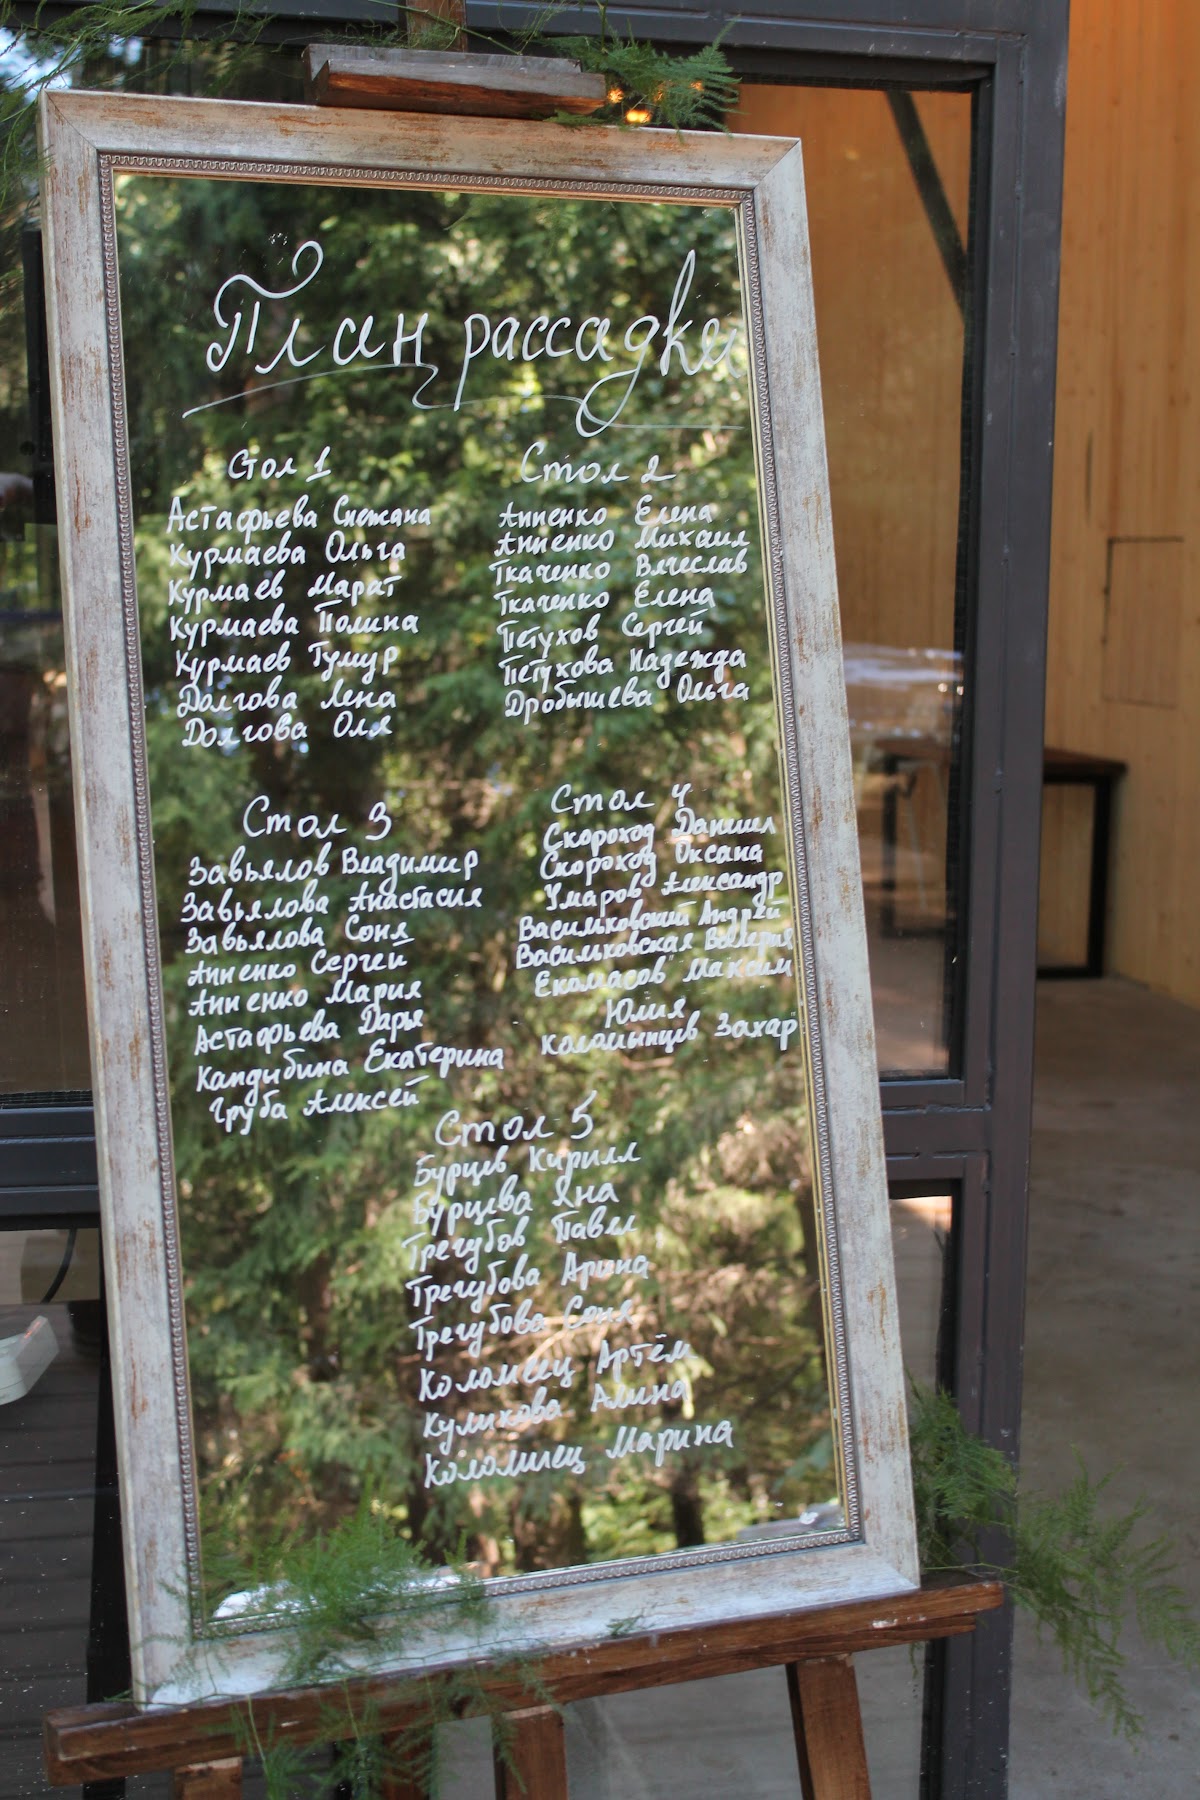 План рассадки
Стол 1
Астафьева Снежана
Курмаева Ольга
Курмаев Марат
Курмаева Полина
Курмаев Тумур
Долгова Лена
Долгова Оля
Стол 2
Анненко Елена
Анненко Михаил
Ткаченко Вячеслав
Ткаченко Елена
Петухов Сергей
Петухова Надежда
Дробышева Ольга
Стол 3
Завьялов Владимир
Завьялова Анастасия
Завьялова Соня
Анненко Сергей
Анненко Мария
Астафьева Дарья
Кандыбина Екатерина
Груба Алексей
Стол 4
Скороход Даниил
Скороход Оксана
Умаров Александр
Васильковский Андрей
Васильковская Валерия
Екомасов Максим
Юлия
Коломынцев Захар
Стол 5
Бурцев Кирилл
Бурцева Яна
Трегубов Павел
Трегубова Арина
Трегубова Соня
Коломиец Артём
Куликова Алина
Коломиец Марина